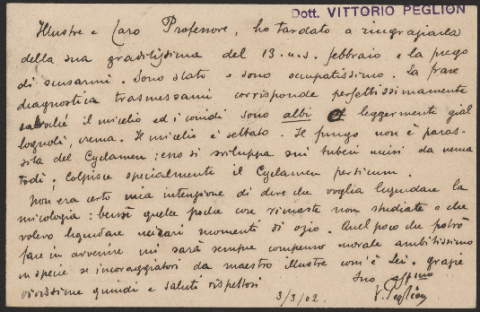 Dott. VITTORIO PEGLION
Illustre e Caro Professore, ho tardato a ringraziarla
della sua graditissima del 13 u.s. febbraio e la prego
di scusarmi. Sono stato e sono occupatissimo. La frase
diagnostica trasmessami corrisponde perfettissimamente
salvoché il micelio ed i conidi sono albi leggermente gial
lognoli, crema. Il micelio è settato. Il fungo non è paras-
sita del Cyclamen; esso si sviluppa sui tuberi uccisi da nema
todi; colpisce specialmente il Cyclamen persicum.
Non era certo mia intenzione di dire che voglia liquidare la
micologia: bensì quelle poche cose rimaste non studiate e che
volevo liquidare nei momenti di ozio. Quel poco che potrò
fare in avvenire mi sarà sempre compenso morale ambitissimo
in specie se incoraggiatori da maestro illustre com'è Lei. grazie
vivissime quindi e saluti rispettosi
Suo affmo
3/3/02. V. Peglion